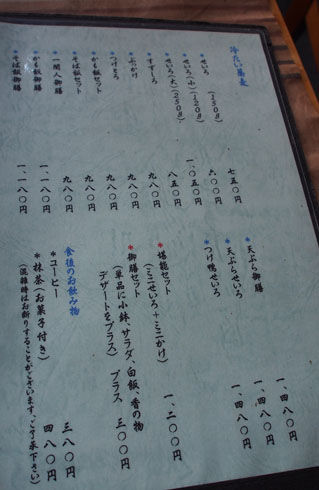 冷たい蕎麦
*せいろ (150g) 七五〇円
*せいろ(小)(120g) 六〇〇円
*せいろ(大)(250g) 一、〇五〇円
*すずしろ 八五〇円
*ぶっかけ 九八〇円
*つけとろ 九八〇円
*かも飯セット 九八〇円
*そば飯セット 九八〇円
*一閑人御膳 九八〇円
*かも飯御膳 一、一八〇円
*そば飯御膳 一、一八〇円
*天ぷら御膳 一、四八〇円
*天ぷらせいろ 一、四八〇円
*つけ鴨せいろ 一、四八〇円
*堪能セット
(ミニせいろ+ミニかけ) 一、二〇〇円
*御膳セット
(単品に小鉢、サラダ、白飯 香の物
デザートをプラス) プラス 三〇〇円
食後のお飲み物
*コーヒー 三八〇円
*抹茶(お菓子付き) 四八〇円
(混雑時はお断りすることがございます、ご了承下さい)